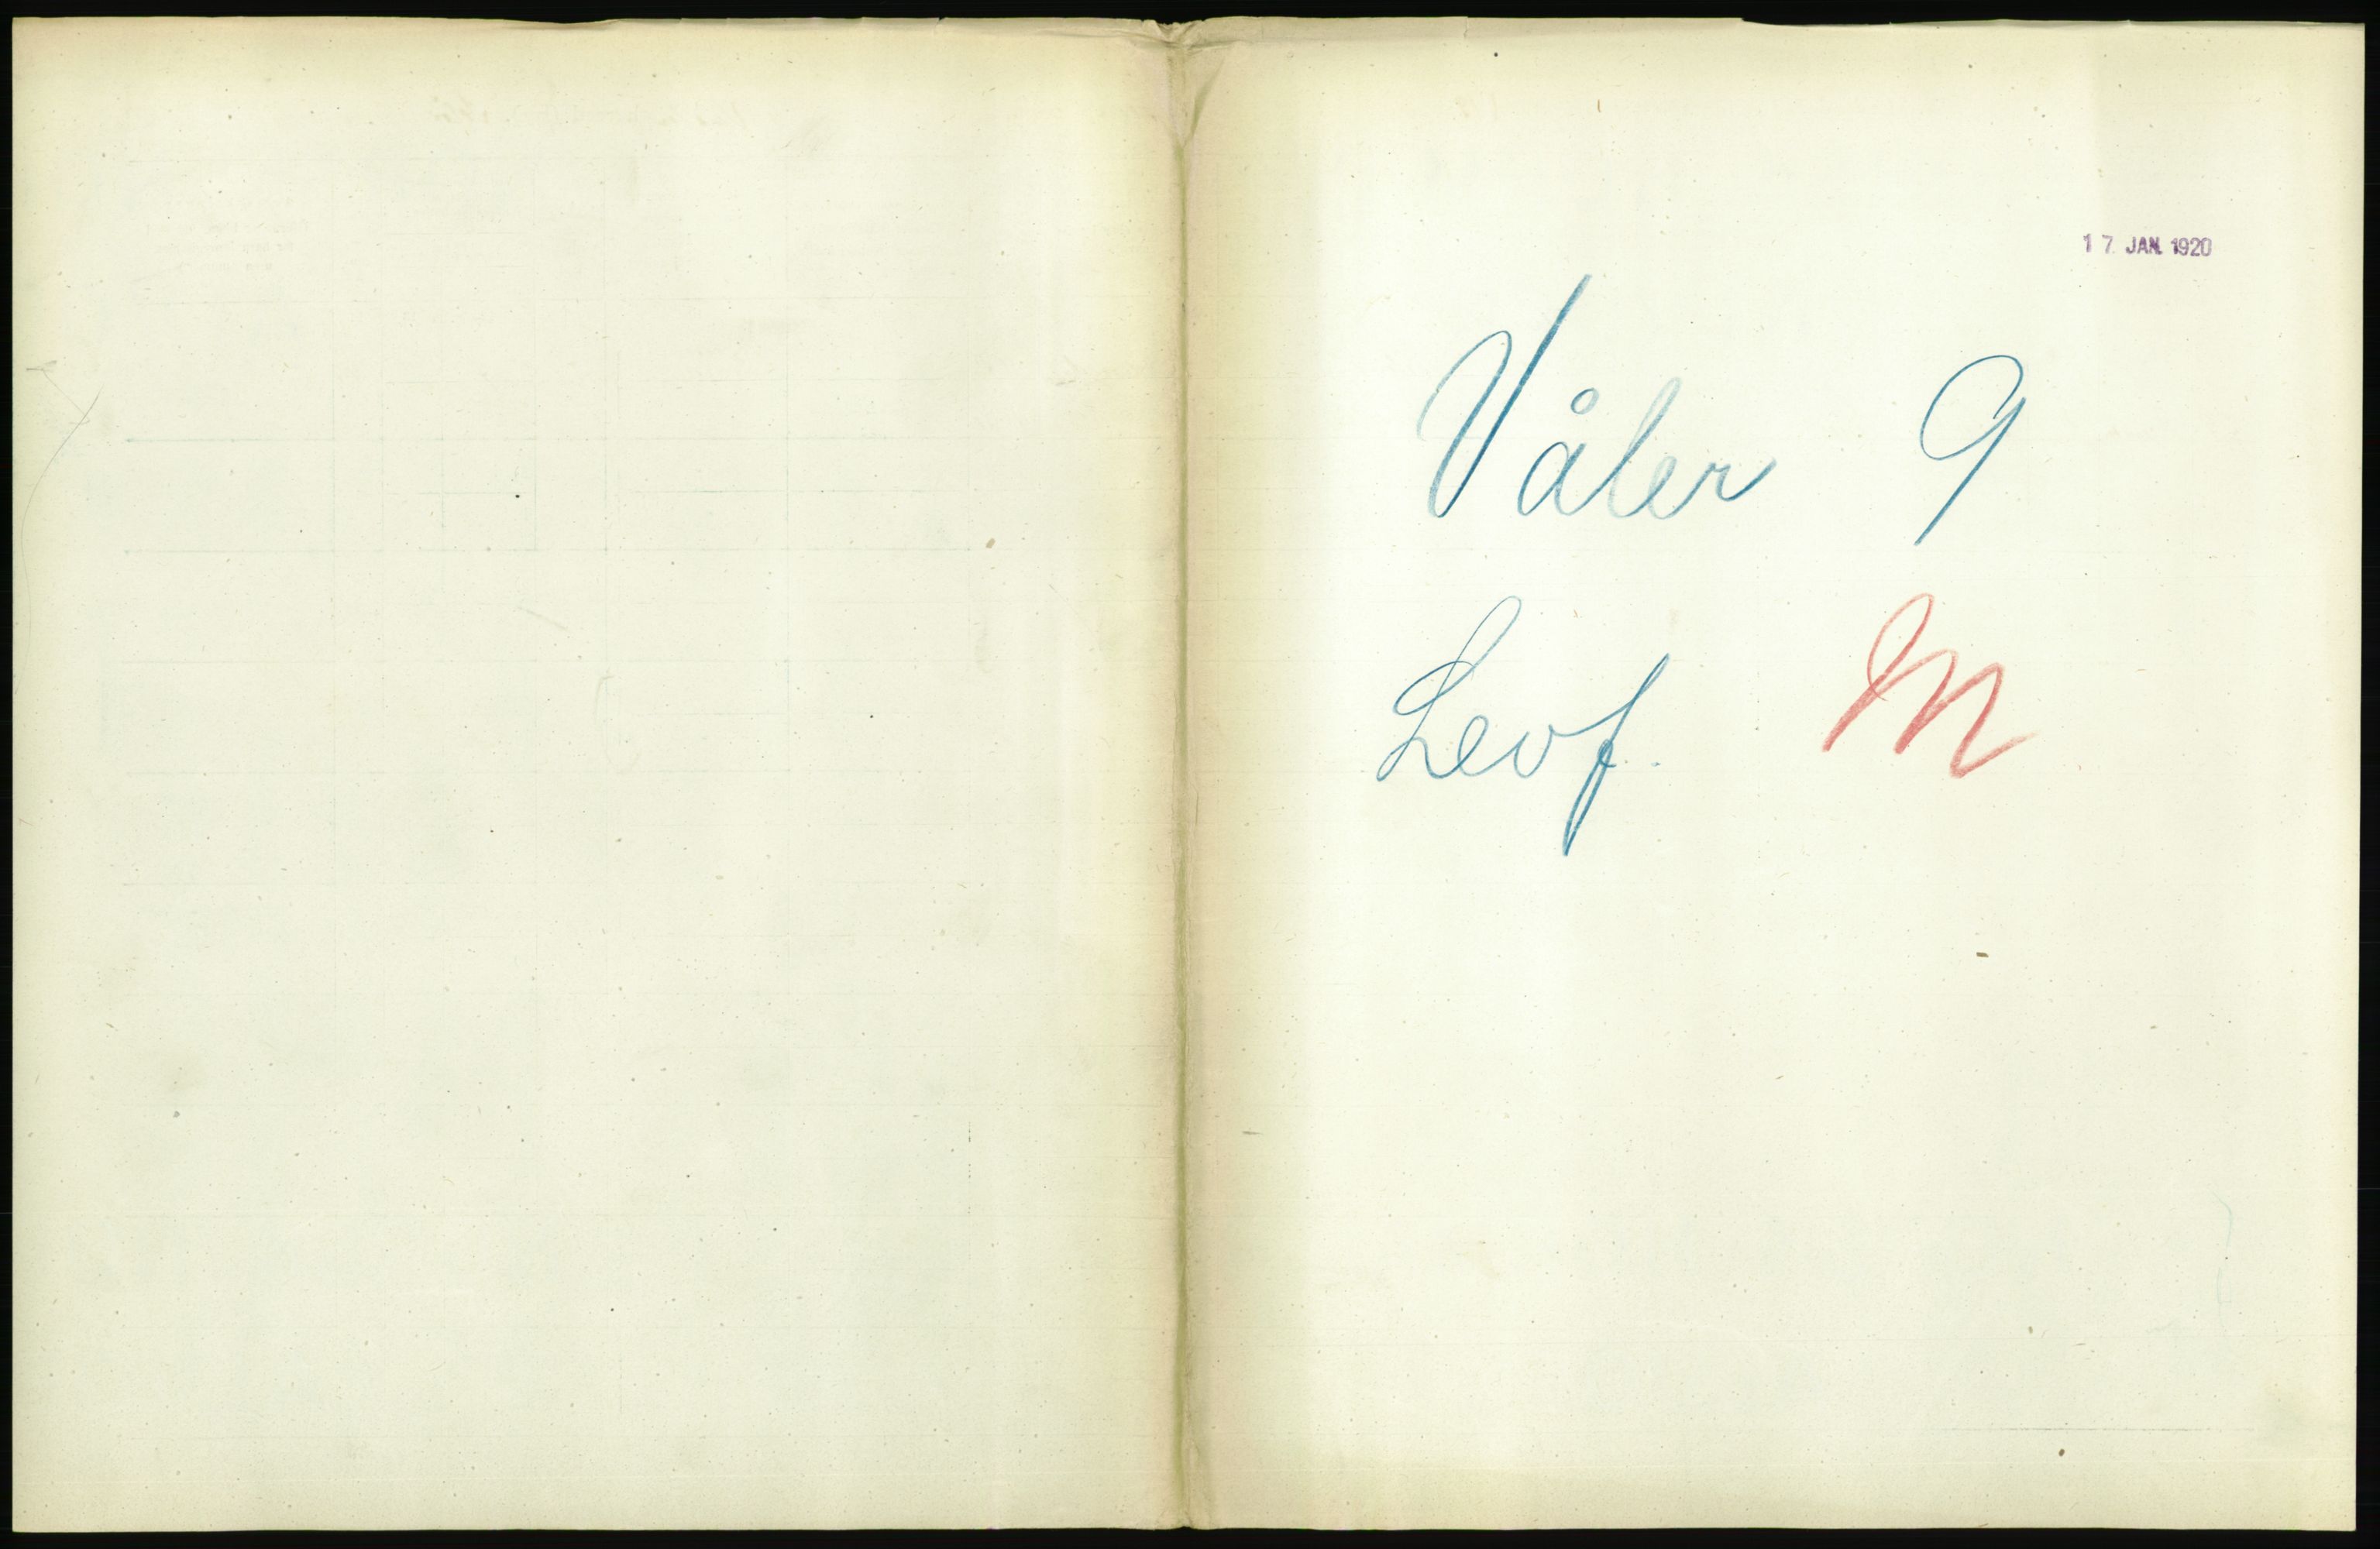 17. JAN. 1920
Våler 9
Levf. M